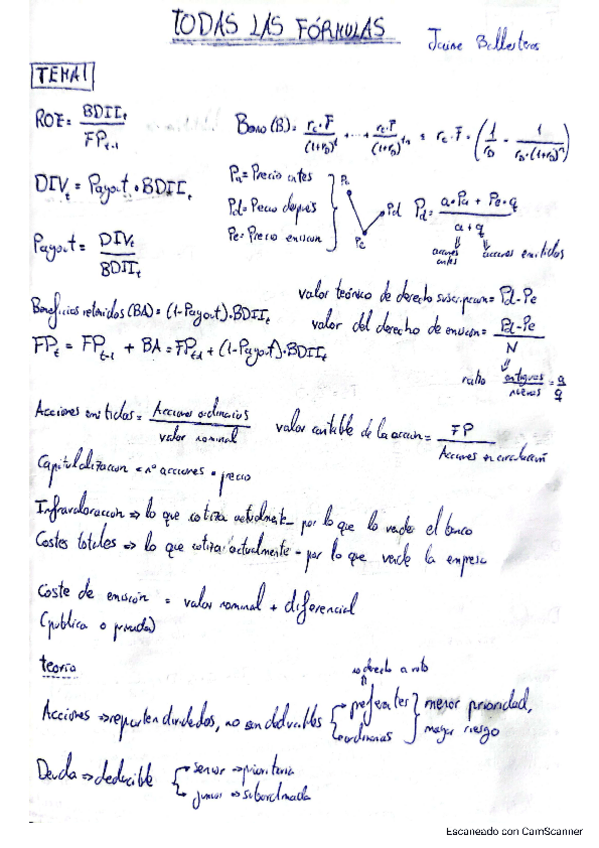 TODAS LAS FÓRMULAS
Jaime Ballesteros
TEMA 1
ROE = BDIIt / FPt-1
Bono (B) = rc·F / (1+rD)^1 + ... + rc·F / (1+rD)^tn = rc · F · (1/rD - 1/(rD·(1+rD)^n))
DIVt = Payout · BDIIt
Pa = Precio antes
Pd = Precio después
Pe = Precio emision
Pa
Pe
Pd
Pd = (a·Pa + Pe·q) / (a+q)
acciones antes
acciones emitidas
Payout = DIVt / BDIIt
valor teórico de derecho suscripcion = Pd - Pe
Beneficios retenidos (BA) = (1-Payout)·BDIIt
valor del derecho de emision = (Pd-Pe) / N
FPt = FPt-1 + BA = FPt-1 + (1-Payout)·BDIIt
ratio antiguas / nuevas = a / q
Acciones emitidas = Acciones ordinarias / valor nominal
valor contable de la accion = FP / Acciones en circulación
Capitalización = nº acciones · precio
Infravaloracion ⇒ lo que cotiza actualmente - por lo que lo vende el banco
Costes totales ⇒ lo que cotiza actualmente - por lo que vende la empresa
Coste de emisión = valor nominal + diferencial
(publica o privada)
teoria
derecho a voto
Acciones ⇒ reparten dividendos, no son deducibles
preferentes
ordinarias
menor prioridad,
mayor riesgo
Deuda ⇒ deducible
senior ⇒ prioritaria
junior ⇒ subordinada
Escaneado con CamScanner